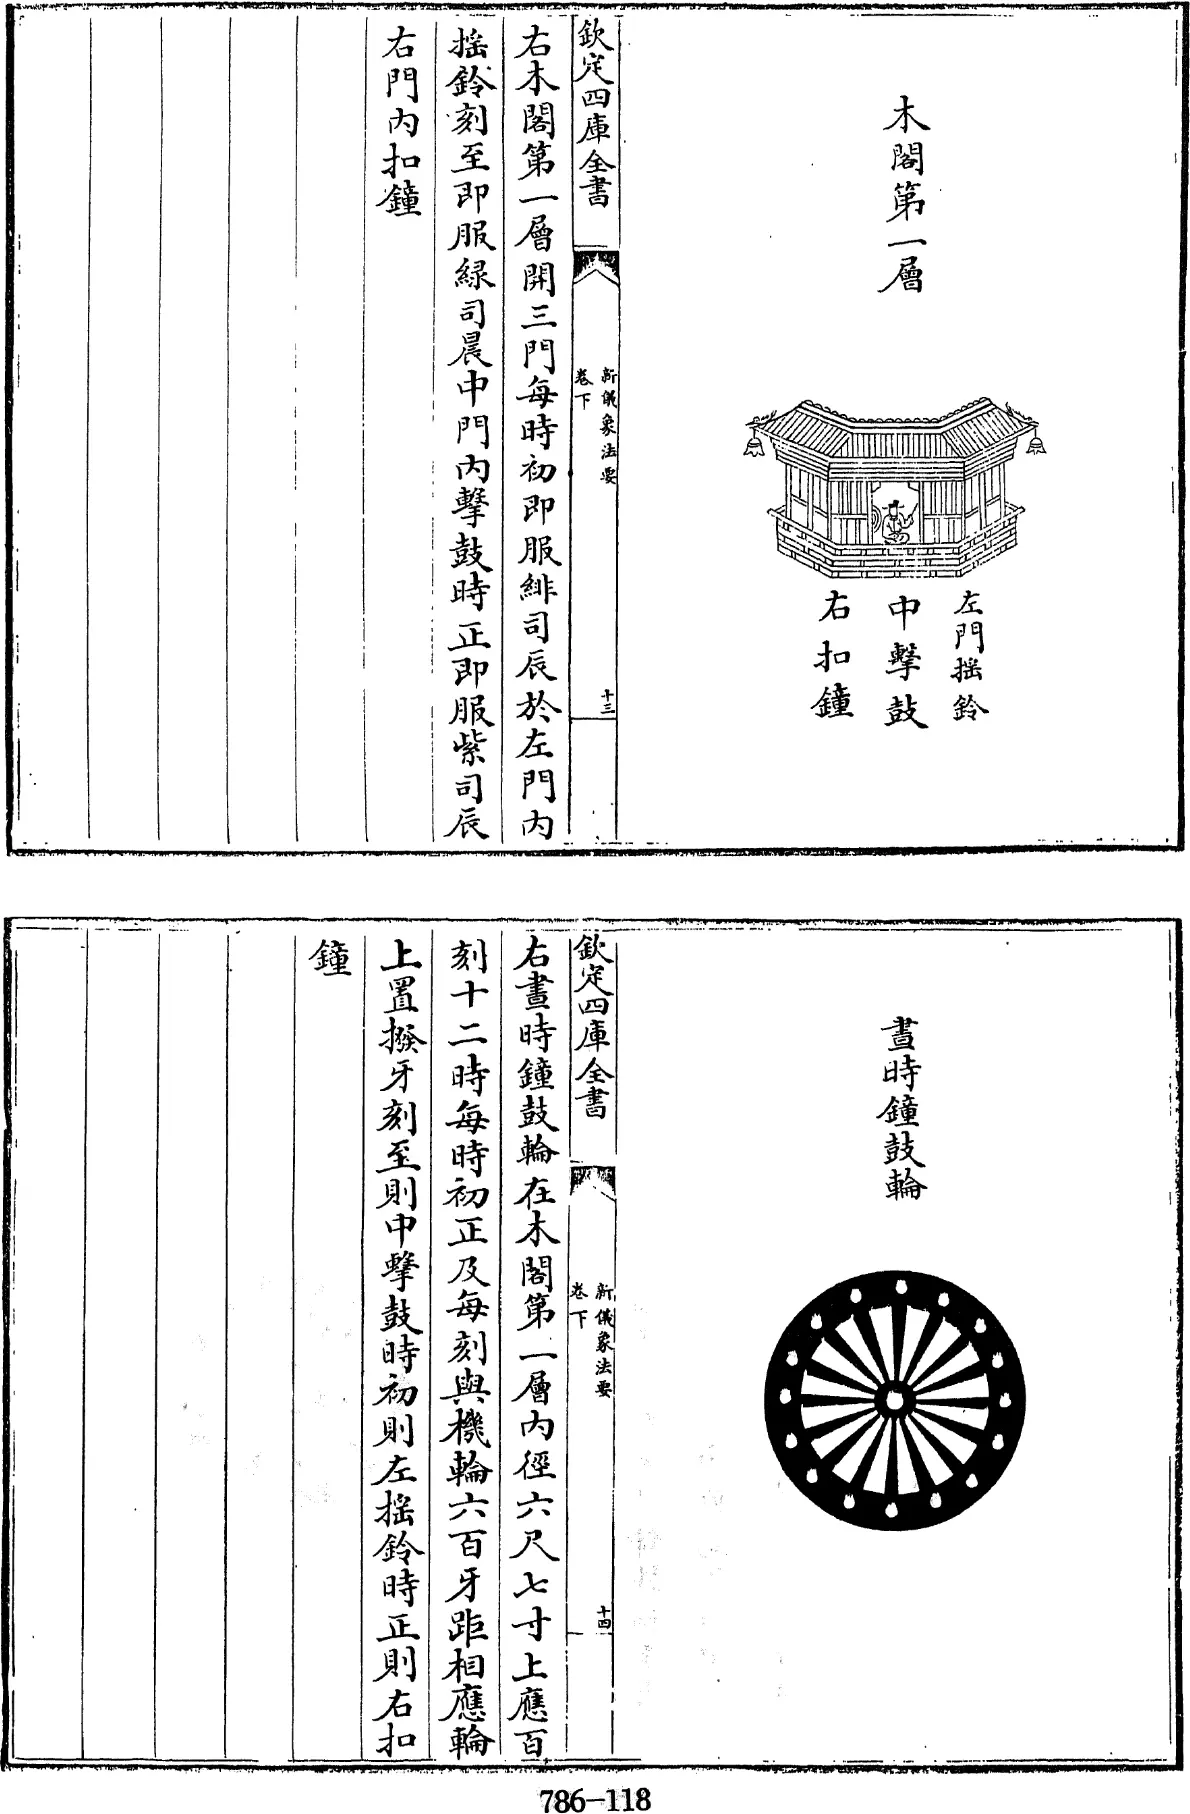 木閣第一層
左門搖鈴
中擊鼓
右扣鐘
欽定四庫全書
新儀象法要
卷下
十三
右木閣第一層開三門每時初即服緋司辰於左門内
搖鈴刻至即服緑司晨中門内擊鼓時正即服紫司辰
右門内扣鐘
晝時鐘鼓輪
欽定四庫全書
新儀象法要
卷下
十四
右晝時鐘鼓輪在木閣第一層内徑六尺七寸上應百
刻十二時每時初正及每刻與機輪六百牙距相應輪
上置撥牙刻至則中擊鼓時初則左搖鈴時正則右扣
鐘
786-118